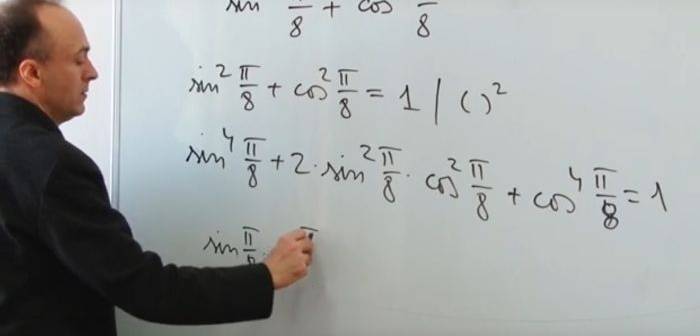 sin π/8 + cos π/8
sin² π/8 + cos² π/8 = 1 | ( )²
sin⁴ π/8 + 2 · sin² π/8 · cos² π/8 + cos⁴ π/8 = 1
sin π/8 ·